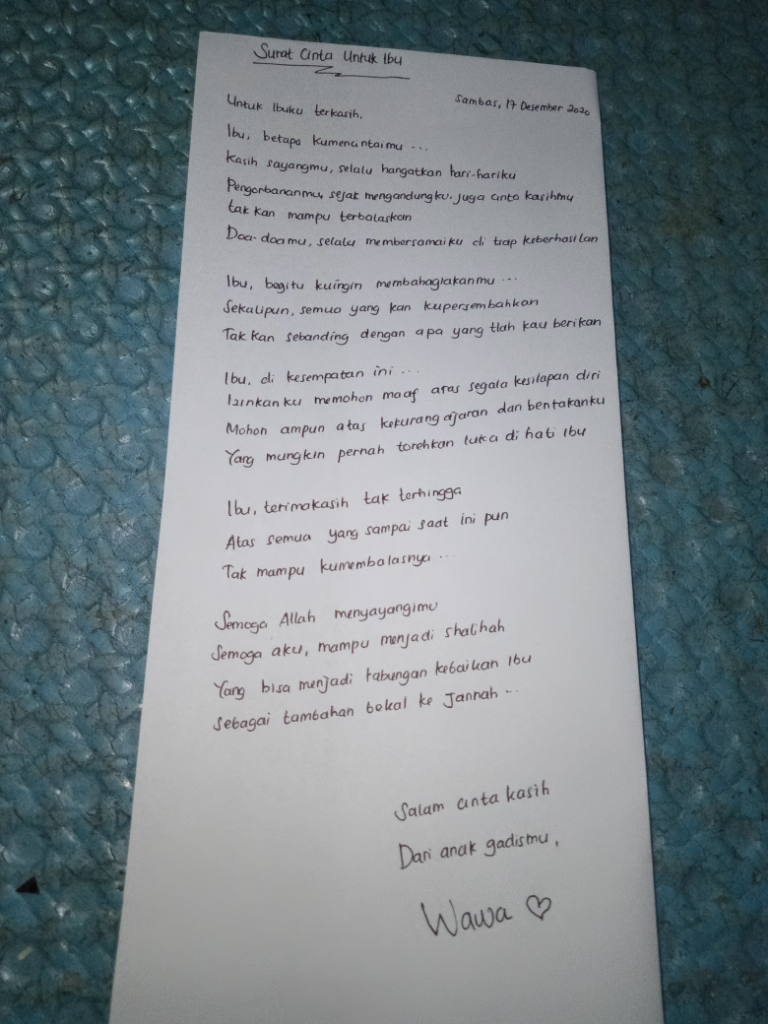 Surat Cinta Untuk Ibu
Sambas, 17 Desember 2020
Untuk Ibuku terkasih.
Ibu, betapa kumencintaimu ...
Kasih sayangmu, selalu hangatkan hari-hariku
Pengorbananmu, sejak mengandungku. Juga cinta kasihmu
tak kan mampu terbalaskan
Doa-doamu, selalu membersamaiku di tiap keberhasilan
Ibu, begitu kuingin membahagiakanmu ...
Sekalipun, semua yang kan kupersembahkan
Tak kan sebanding dengan apa yang tlah kau berikan
Ibu, di kesempatan ini ...
Izinkanku memohon maaf atas segala kesilapan diri
Mohon ampun atas kekurangajaran dan bentakanku
Yang mungkin pernah torehkan luka di hati Ibu
Ibu, terimakasih tak terhingga
Atas semua yang sampai saat ini pun
Tak mampu kumembalasnya ...
Semoga Allah menyayangimu
Semoga aku, mampu menjadi shalihah
Yang bisa menjadi tabungan kebaikan Ibu
Sebagai tambahan bekal ke Jannah ...
Salam cinta kasih
Dari anak gadismu,
Wawa ♡